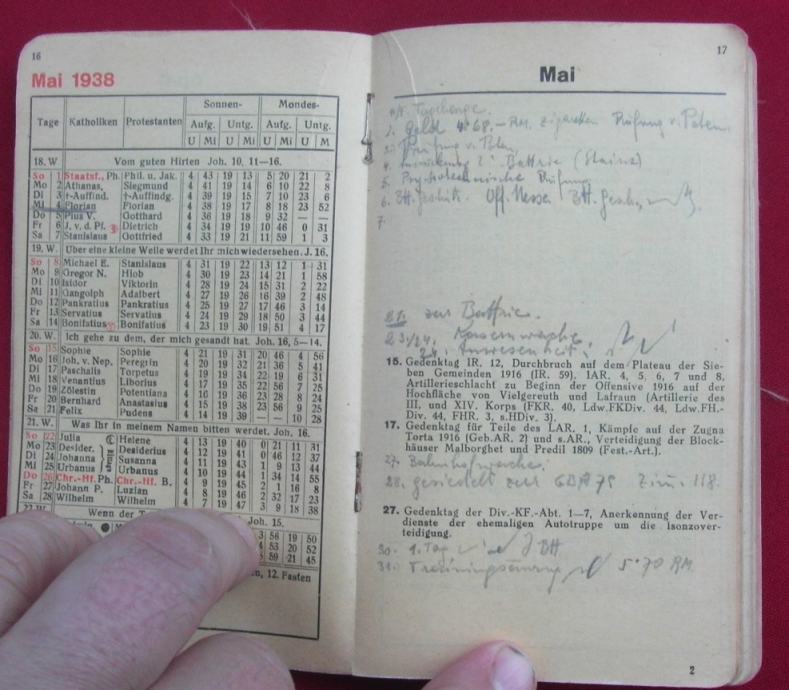 16
Mai 1938
Tage Katholiken Protestanten Sonnen- Mondes-
Aufg. Untg. Aufg. Untg.
U Mi U Mi U Mi U M
18. W Vom guten Hirten Joh. 10, 11—16.
So 1 Staatsf., Ph. Phil. u. Jak. 4 43 19 13 5 20 21 2
Mo 2 Athanas, Siegmund 4 41 19 14 6 10 22 8
Di 3 †-Auffind. †-Auffindg. 4 39 19 15 7 10 23 6
Mi 4 Florian Florian 4 38 19 17 8 18 23 52
Do 5 Pius V. Gotthard 4 36 19 18 9 32 — —
Fr 6 J. v. d. Pf. Dietrich 4 34 19 19 10 46 0 31
Sa 7 Stanislaus Gottfried 4 33 19 21 11 59 1 3
19. W. Über eine kleine Weile werdet Ihr mich wiedersehen. J. 16.
So 8 Michael E. Stanislaus 4 31 19 22 13 12 1 31
Mo 9 Gregor N. Hiob 4 30 19 23 14 21 1 58
Di 10 Isidor Viktorin 4 28 19 24 15 31 2 22
Mi 11 Gangolph Adalbert 4 27 19 26 16 39 2 48
Do 12 Pankratius Pankratius 4 25 19 27 17 46 3 14
Fr 13 Servatius Servatius 4 24 19 29 18 50 3 44
Sa 14 Bonifatius Bonifatius 4 23 19 30 19 51 4 17
20. W. Ich gehe zu dem, der mich gesandt hat. Joh. 16, 5—14.
So 15 Sophie Sophie 4 21 19 31 20 46 4 56
Mo 16 Joh. v. Nep. Peregrin 4 20 19 32 21 36 5 41
Di 17 Paschalis Torpetus 4 19 19 34 22 19 6 31
Mi 18 Venantius Liborius 4 17 19 35 22 56 7 25
Do 19 Zölestin Potentiana 4 16 19 36 23 28 8 24
Fr 20 Bernhard Anastasius 4 15 19 38 23 56 9 25
Sa 21 Felix Pudens 4 14 19 39 — — 10 28
21. W. Was Ihr in meinem Namen bitten werdet. Joh. 16.
So 22 Julia Helene 4 13 19 40 0 21 11 31
Mo 23 Desider. Desiderius 4 12 19 41 0 46 12 37
Di 24 Johanna Susanna 4 11 19 43 1 9 13 44
Mi 25 Urbanus Urbanus 4 10 19 44 1 34 14 55
Do 26 Chr.-Hf. Ph. Chr.-Hf. B. 4 9 19 45 2 1 16 8
Fr 27 Johann P. Luzian 4 8 19 46 2 32 17 23
Sa 28 Wilhelm Wilhelm 4 7 19 47 3 9 18 38
Wenn der Joh. 15.
3 56 19 50
4 53 20 52
5 59 21 45
12. Fasten
17
Mai
1. Geld 4·68.- RM. Zigaretten Prüfung v.
3. Prüfung v.
4. Battrie
5. Psychotechnische Prüfung
6. Off. Messe
7.
21. zur Battrie.
23./24.
15. Gedenktag IR. 12, Durchbruch auf dem Plateau der Sie-
ben Gemeinden 1916 (IR. 59). IAR. 4, 5, 6, 7 und 8,
Artillerieschlacht zu Beginn der Offensive 1916 auf der
Hochfläche von Vielgereuth und Lafraun (Artillerie des
III. und XIV. Korps (FKR. 40, Ldw.FKDiv. 44, Ldw.FH.-
Div. 44, FHR. 3, s.HDiv. 3).
17. Gedenktag für Teile des LAR. 1, Kämpfe auf der Zugna
Torta 1916 (Geb.AR. 2) und s.AR., Verteidigung der Block-
häuser Malborghet und Predil 1809 (Fest.-Art.).
27. Bahnhofwache.
28. gesiedelt zur GBA 75 Zim. 118.
27. Gedenktag der Div.-KF.-Abt. 1—7, Anerkennung der Ver-
dienste der ehemaligen Autotruppe um die Isonzover-
teidigung.
30. 1. Tag
31. 5·70 RM.
2